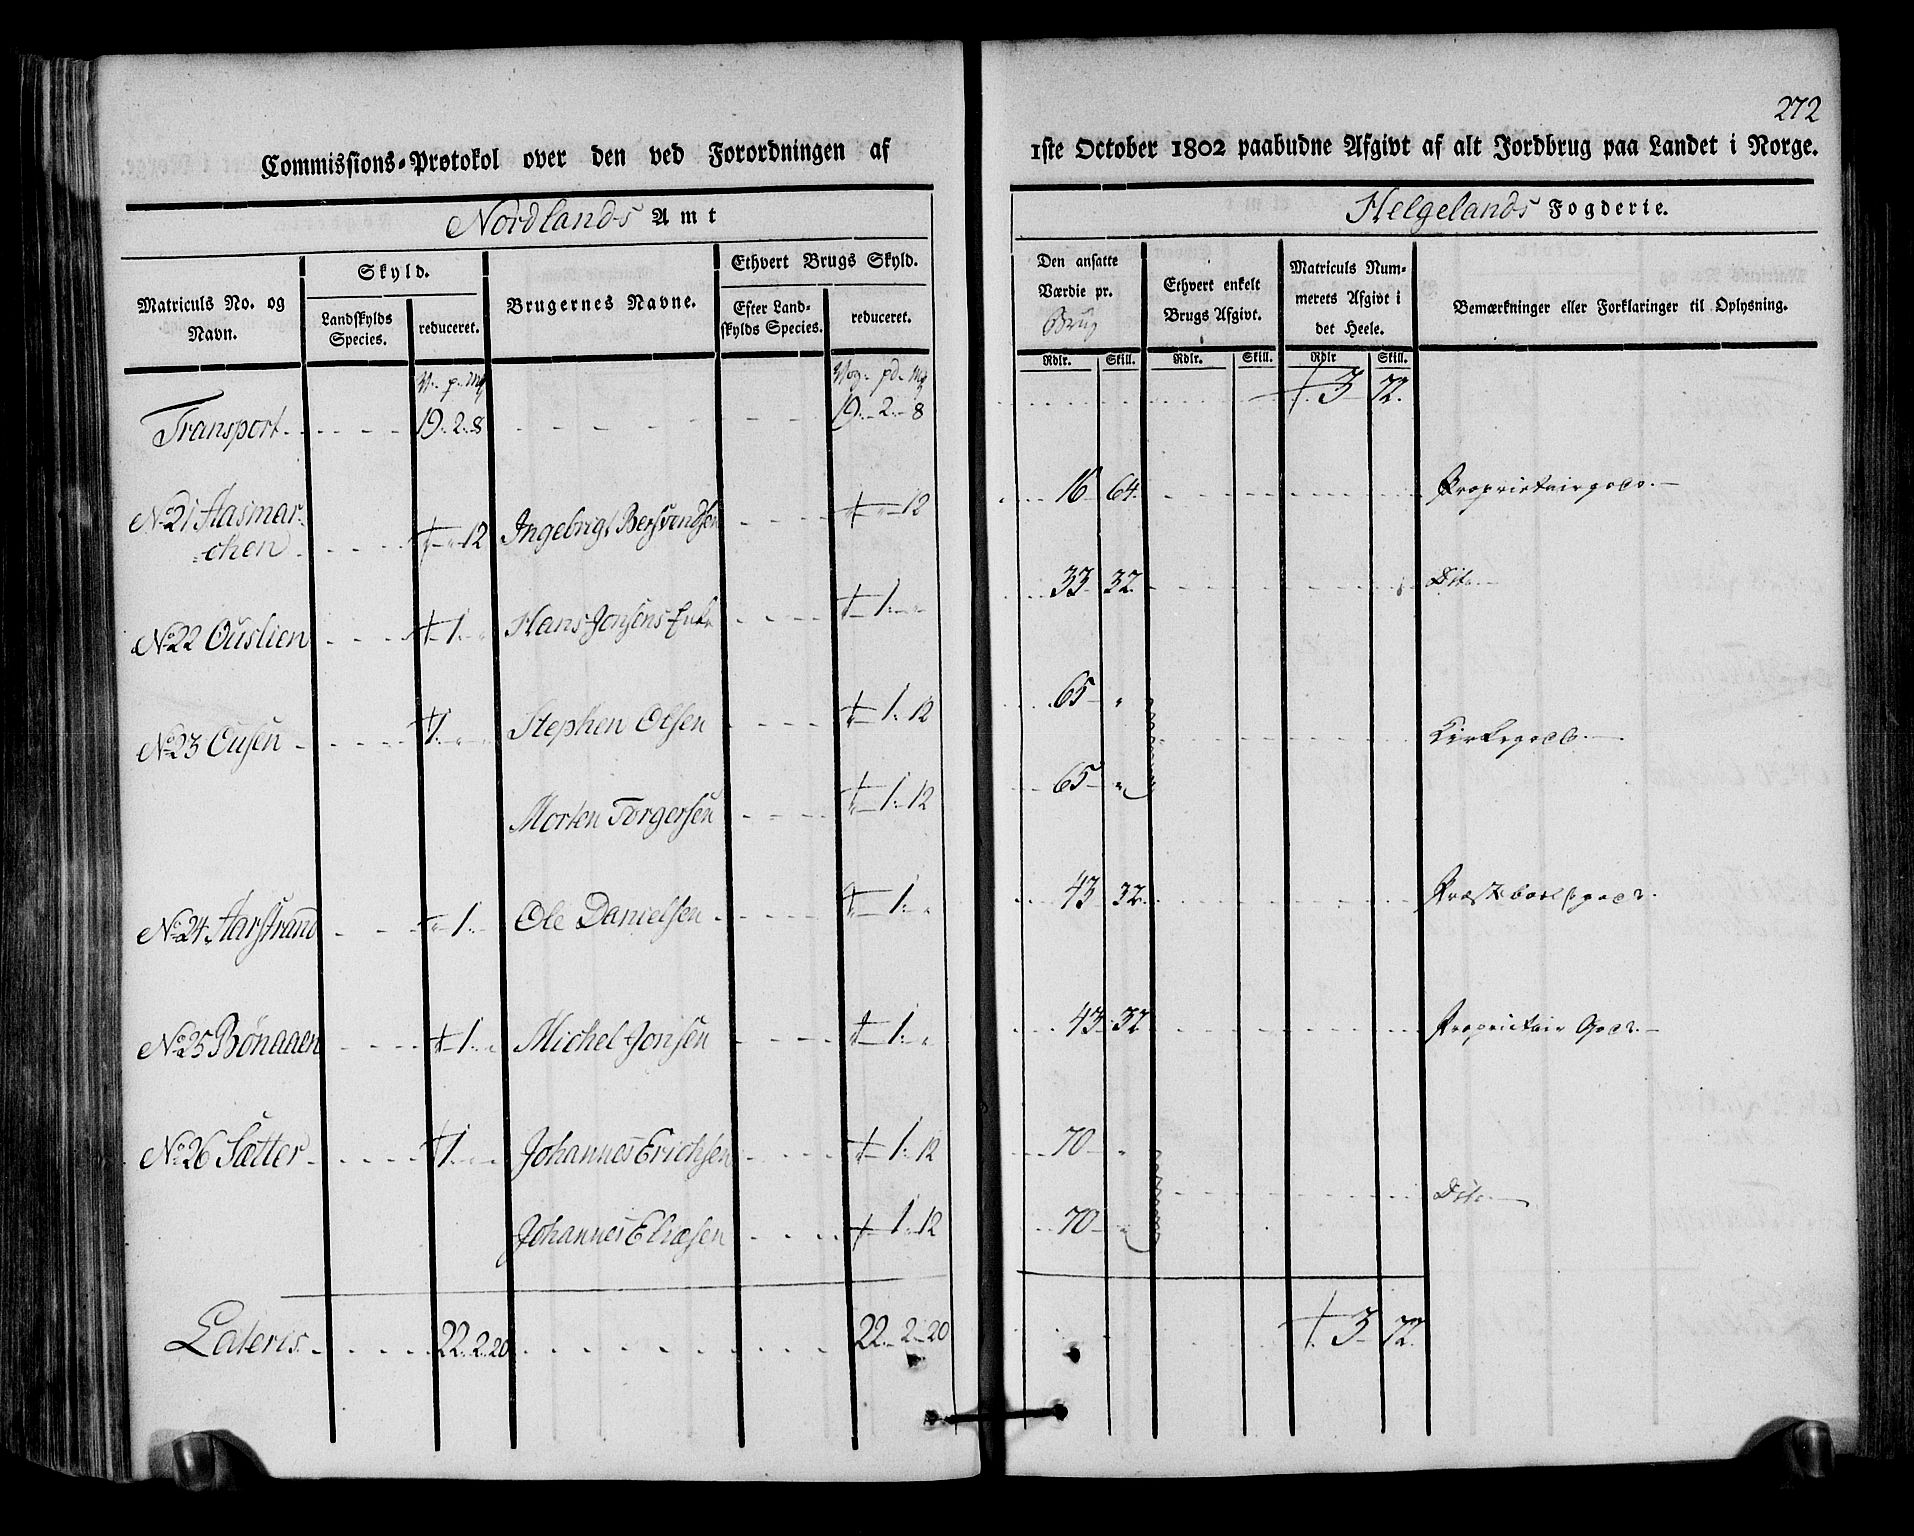 272
Commissions-Protokol over den ved Forordningen af 1ste October 1802 paabudne Afgivt af alt Jordbrug paa Landet i Norge.
Nordlands Amt
Helgelands Fogderie.
Matriculs No. og Navn.
Skyld.
Landskylds Species.
reduceret.
Brugernes Navne.
Ethvert Brugs Skyld.
Efter Landskylds Species.
reduceret.
Den ansatte Værdie pr. Brug
Ethvert enkelt Brugs Afgivt.
Matriculs Nummerets Afgivt i det Heele.
Bemærkninger eller Forklaringer til Oplysning.
Rdlr. Skill. Rdlr. Skill. Rdlr Skill.
V. p. Mk Vog. pd. Mk
Transport 19. 2. 8 19. 2. 8 3 72.
No 21 Aasmar-
chen 12 Ingebrigt Bersvendsen 12 16 64. Proprietairgods.
No 22 Ouslien 1. " Hans Jonsens Enke 1. " 33 32. Dito
No 23 Ousen 1. " Stephen Olsen 1. 12 65 " Kirkegods.
Morten Torgersen 1. 12 65 "
No 24 Aarstrand 1. Ole Danielsen 1. " 43 32. Præstebolsgods.
No 25 Bønaaen 1. " Michel Jonsen 1. " 43 32 Proprietair Gods.
No 26 Sætter 1. " Johannes Erichsen 1. 12 70 " Dito
Johannes Eliæsen 1. 12 70 "
Lateris. 22. 2. 20 22. 2. 20 3 72.